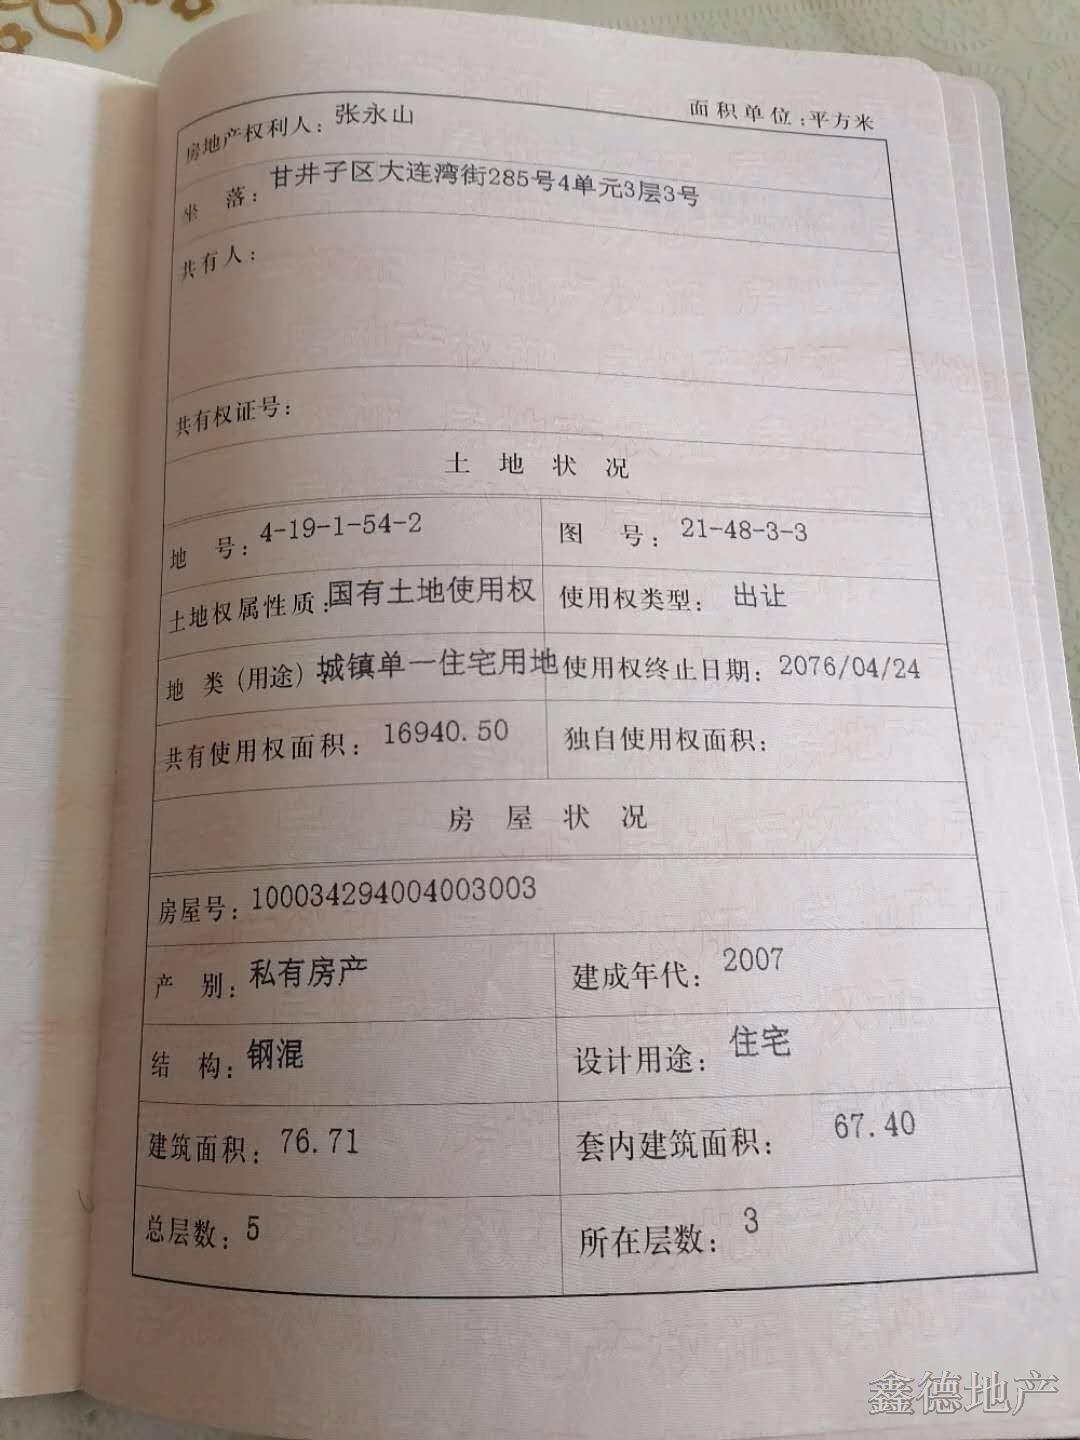 面积单位:平方米
房地产权利人:张永山
坐 落:甘井子区大连湾街285号4单元3层3号
共有人:
共有权证号:
土 地 状 况
地 号:4-19-1-54-2 图 号:21-48-3-3
土地权属性质:国有土地使用权 使用权类型:出让
地 类(用途):城镇单一住宅用地 使用权终止日期:2076/04/24
共有使用权面积:16940.50 独自使用权面积:
房 屋 状 况
房屋号:100034294004003003
产 别:私有房产 建成年代:2007
结 构:钢混 设计用途:住宅
建筑面积:76.71 套内建筑面积:67.40
总层数:5 所在层数:3
鑫德地产